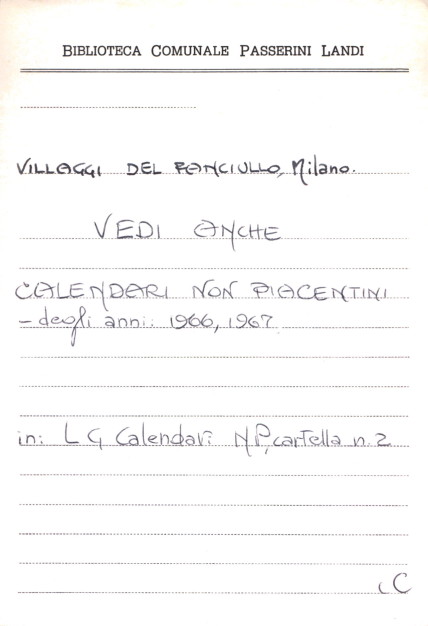 BIBLIOTECA COMUNALE PASSERINI LANDI
VILLAGGI DEL FANCIULLO, Milano.
VEDI ANCHE
CALENDARI NON PIACENTINI
- degli anni: 1966, 1967
in: L G Calendari NP, cartella n. 2
C